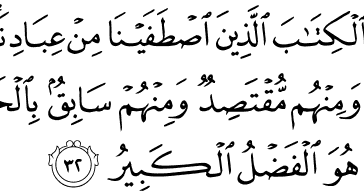 ٱلْكِتَٰبَ ٱلَّذِينَ ٱصْطَفَيْنَا مِنْ عِبَادِنَ
وَمِنْهُم مُّقْتَصِدٌ وَمِنْهُمْ سَابِقٌۢ بِٱلْخَ
هُوَ ٱلْفَضْلُ ٱلْكَبِيرُ ٣٢